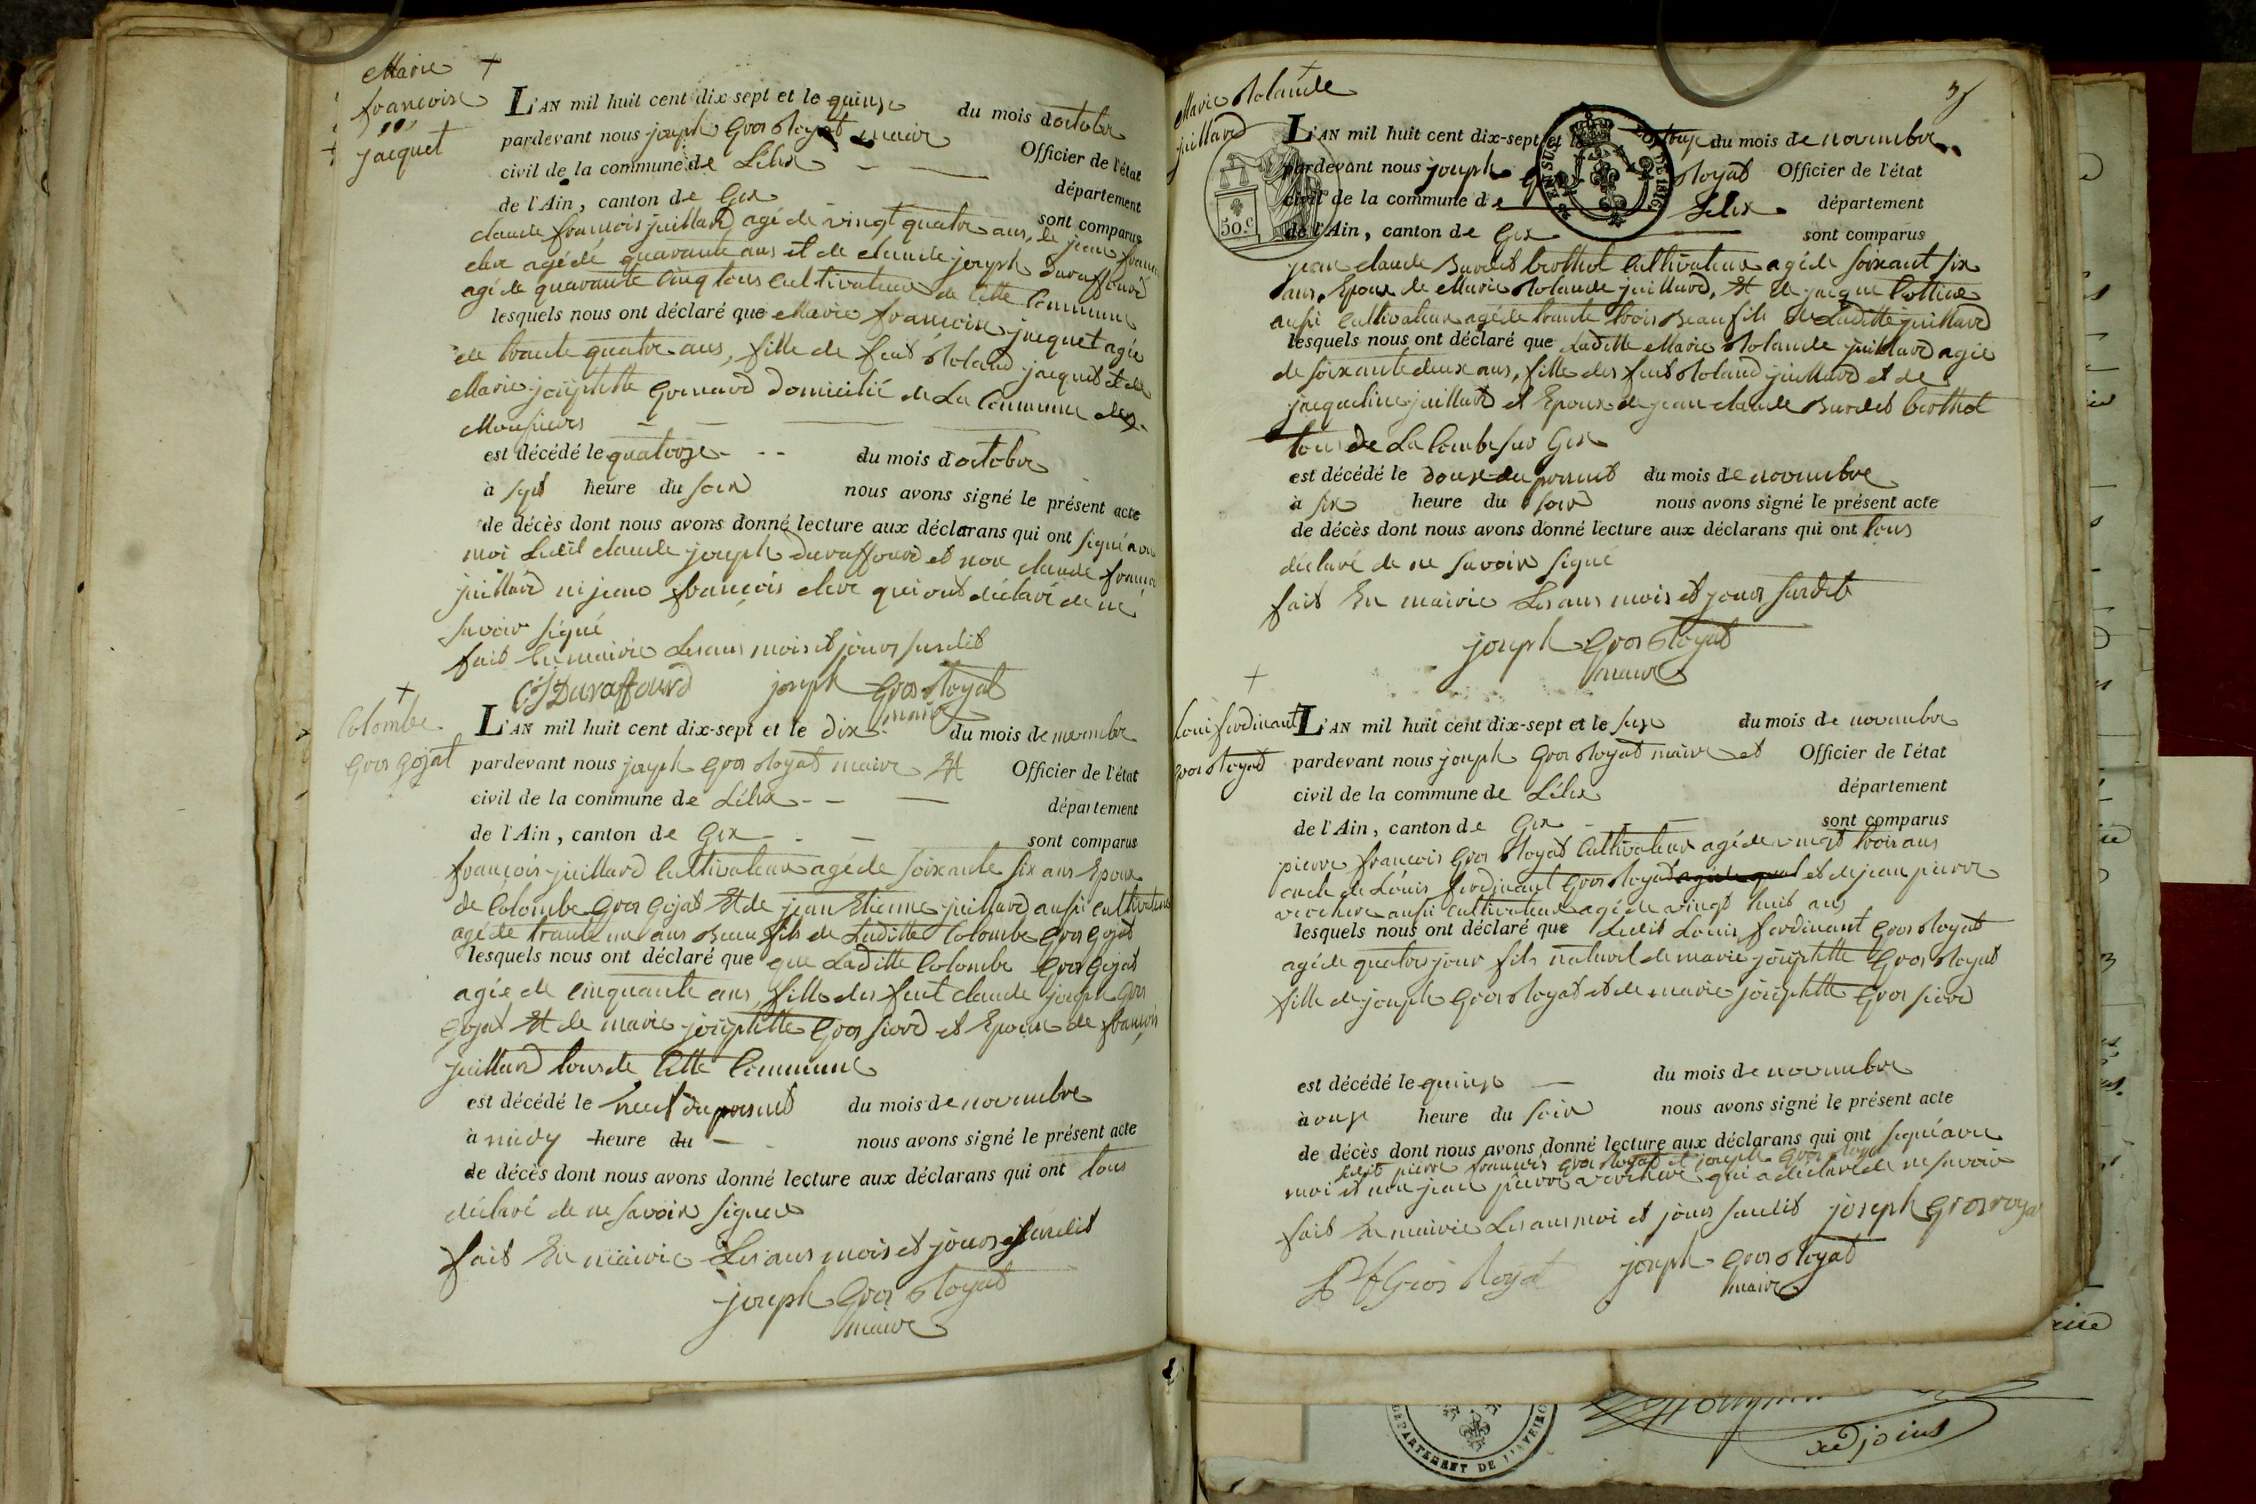 Marie +
françoise
jacquet
L'AN mil huit cent dix-sept et le quinze du mois doctobre
pardevant nous joseph Gros Royat maire Officier de l'état
civil de la commune de Lélex département
de l'Ain, canton de Gex sont comparus
claude françois juillard agé de vingt quatre ans, de jean
agé de quarante ans et de claude joseph Duraffourd
agé de quarante cinq tous cultivateur de cette Commune
lesquels nous ont déclaré que Marie françoise jacquet agée
de trante quatre ans, fille de feut Roland jacquet et de
Marie josephtte Grenard domicilié de La Commune des
Mousieres
est décédé le quatorze du mois doctobre
à sept heure du soir nous avons signé le présent acte
de décès dont nous avons donné lecture aux déclarans qui ont signé avec
moi Ledit claude joseph Duraffourd et non claude
juillard ni jean françois qui ont déclaré de ne
savoir signé
fait En mairie Les ans mois et jours susdit
CJ Duraffourd joseph Gros Royat
maire
+
Colombe
Gros Gojat
L'AN mil huit cent dix-sept et le dix du mois de novembre
pardevant nous joseph Gros Royat maire Et Officier de l'état
civil de la commune de Lélex département
de l'Ain, canton de Gex sont comparus
françois juillard Cultivateur agé de soixante six ans Epoux
de Colombe Gros Gojat Et de jean Etienne juillard ausi cultivateur
agé de trante un ans Beau fils de Laditte Colombe Gros Gojat
lesquels nous ont déclaré que que Laditte Colombe Gros Gojat
agée de cinquante ans fille des feut claude joseph Gros
Gojat Et de marie josephtte Gros fiord et Epouse de françois
juillard tous de Cette Commune
est décédé le neuf du presnt du mois de novembre
à midy heure du nous avons signé le présent acte
de décès dont nous avons donné lecture aux déclarans qui ont tous
déclaré de ne savoir signer
fait En mairie Les ans mois et jours susdit
joseph Gros Royat
maire
Marie Rolande
juillard
L'AN mil huit cent dix-sept et du mois de novembre
pardevant nous joseph Royat Officier de l'état
civil de la commune de Lélex département
de l'Ain, canton de Gex sont comparus
50.c
LOI DE 1816
jean claude Burdet Cultivateur agé de soixant six
ans, Epoux de Marie Rolande juillard, Et de jacque
ausi Cultivateur agé de trante trois Beau fils de Laditte juillard
lesquels nous ont déclaré que Laditte Marie Rolande juillard agée
de soixante deux ans, fille des feut Roland juillard et de
jacqueline juillard et Epouse de jean claude Burdet
tous de La Combe sur Gex
est décédé le douze du presnt du mois de novembre
à six heure du soir nous avons signé le présent acte
de décès dont nous avons donné lecture aux déclarans qui ont tous
déclaré de ne savoir signé
fait En mairie Les ans mois et jours susdit
joseph Gros Royat
maire
+
Loui ferdinant
Gros Royat
L'AN mil huit cent dix-sept et le seze du mois de novembre
pardevant nous joseph Gros Royat maire et Officier de l'état
civil de la commune de Lélex département
de l'Ain, canton de Gex sont comparus
pierre françois Gros Royat Cultivateur agé de vingt trois ans
oncle de Louis ferdinant Gros Royat et de jean pierre
ausi cultivateur agé de vingt huit ans
lesquels nous ont déclaré que Ledit Louis ferdinant Gros Royat
agé de quatre jour fils naturel de marie josephtte Gros Royat
fille de joseph Gros Royat et de marie josephtte Gros fiord
est décédé le quinze du mois de novembre
à onze heure du soir nous avons signé le présent acte
de décès dont nous avons donné lecture aux déclarans qui ont signé avec
Ledit pierre françois Gros Royat et joseph Gros Royat
moi et non jean pierre qui a déclaré de ne savoir
fait En mairie Les ans moi et jours susdit joseph Grosroyat
Gros Royat joseph Gros Royat
maire
DEPARTEMENT DE
adjoint